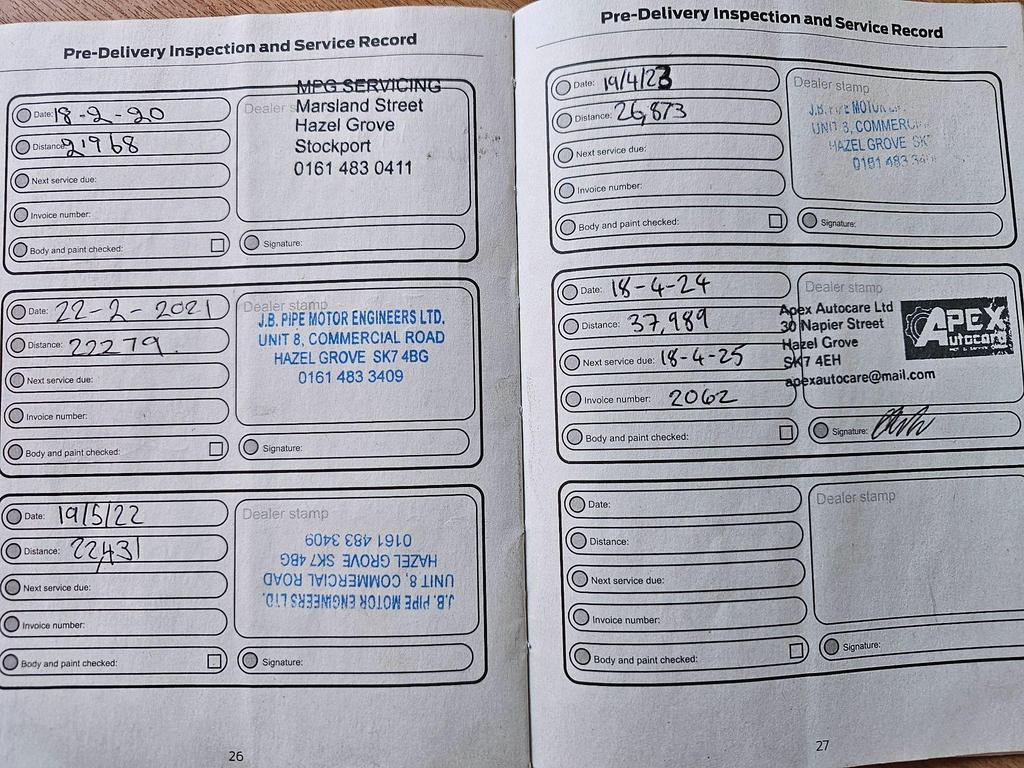 Pre-Delivery Inspection and Service Record
Date: 18-2-20
Distance: 21968
Next service due:
Invoice number:
Body and paint checked:
Dealer
MPG SERVICING
Marsland Street
Hazel Grove
Stockport
0161 483 0411
Signature:
Date: 22-2-2021
Distance: 22279.
Next service due:
Invoice number:
Body and paint checked:
Dealer stamp
J.B. PIPE MOTOR ENGINEERS LTD.
UNIT 8, COMMERCIAL ROAD
HAZEL GROVE SK7 4BG
0161 483 3409
Signature:
Date: 19/5/22
Distance: 22,431
Next service due:
Invoice number:
Body and paint checked:
Dealer stamp
J.B. PIPE MOTOR ENGINEERS LTD.
UNIT 8, COMMERCIAL ROAD
HAZEL GROVE SK7 4BG
0161 483 3409
Signature:
26
Pre-Delivery Inspection and Service Record
Date: 19/4/23
Distance: 26,873
Next service due:
Invoice number:
Body and paint checked:
Dealer stamp
J.B.
UNIT 8,
HAZEL GROVE
0161 483
Signature:
Date: 18-4-24
Distance: 37,989
Next service due: 18-4-25
Invoice number: 2062
Body and paint checked:
Dealer stamp
Apex Autocare Ltd
30 Napier Street
Hazel Grove
SK7 4EH
apexautocare@mail.com
APEX
Autocare
Signature:
Date:
Distance:
Next service due:
Invoice number:
Body and paint checked:
Dealer stamp
Signature:
27